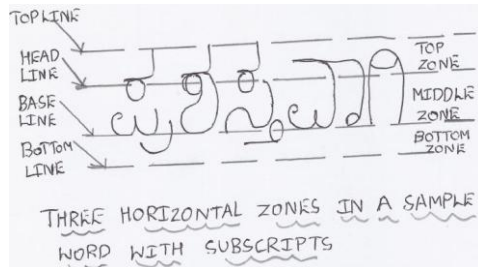 TOP LINE
HEAD
LINE
BASE
LINE
BOTTOM
LINE
TOP
ZONE
MIDDLE
ZONE
BOTTOM
ZONE
THREE HORIZONTAL ZONES IN A SAMPLE
WORD WITH SUBSCRIPTS